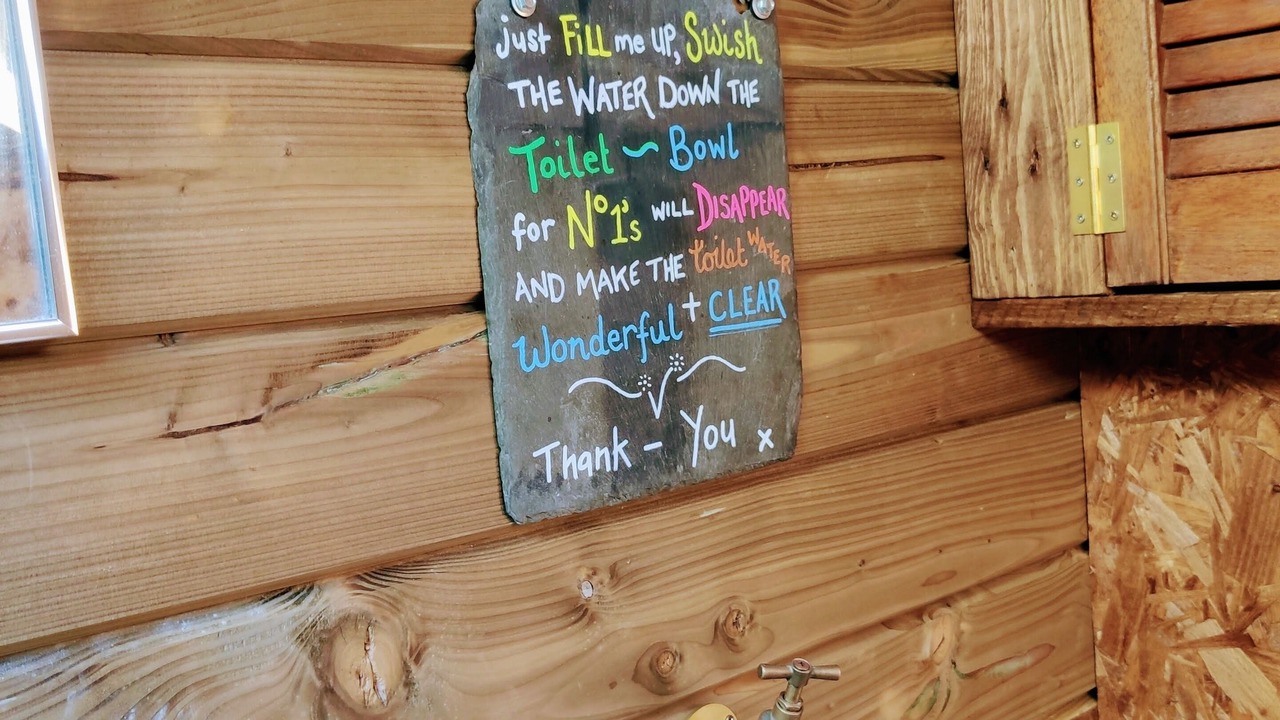 just FiLL me UP, Swish
THE WATER DOWN THE
Toilet ~ Bowl
for Nº1's WILL DISAPPEAR
AND MAKE THE toilet WATER
Wonderful + CLEAR
Thank - You x